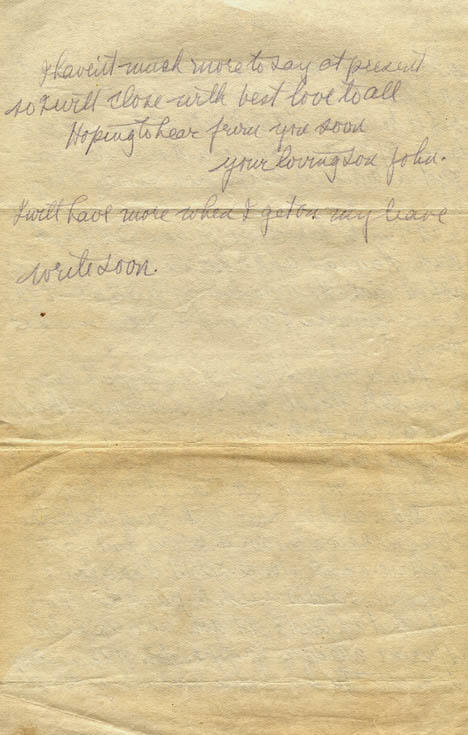 I haven't much more to say at present
so I will close with best love to all
Hoping to hear from you soon
your loving son John.
I will have more when I get on my leave
write soon.